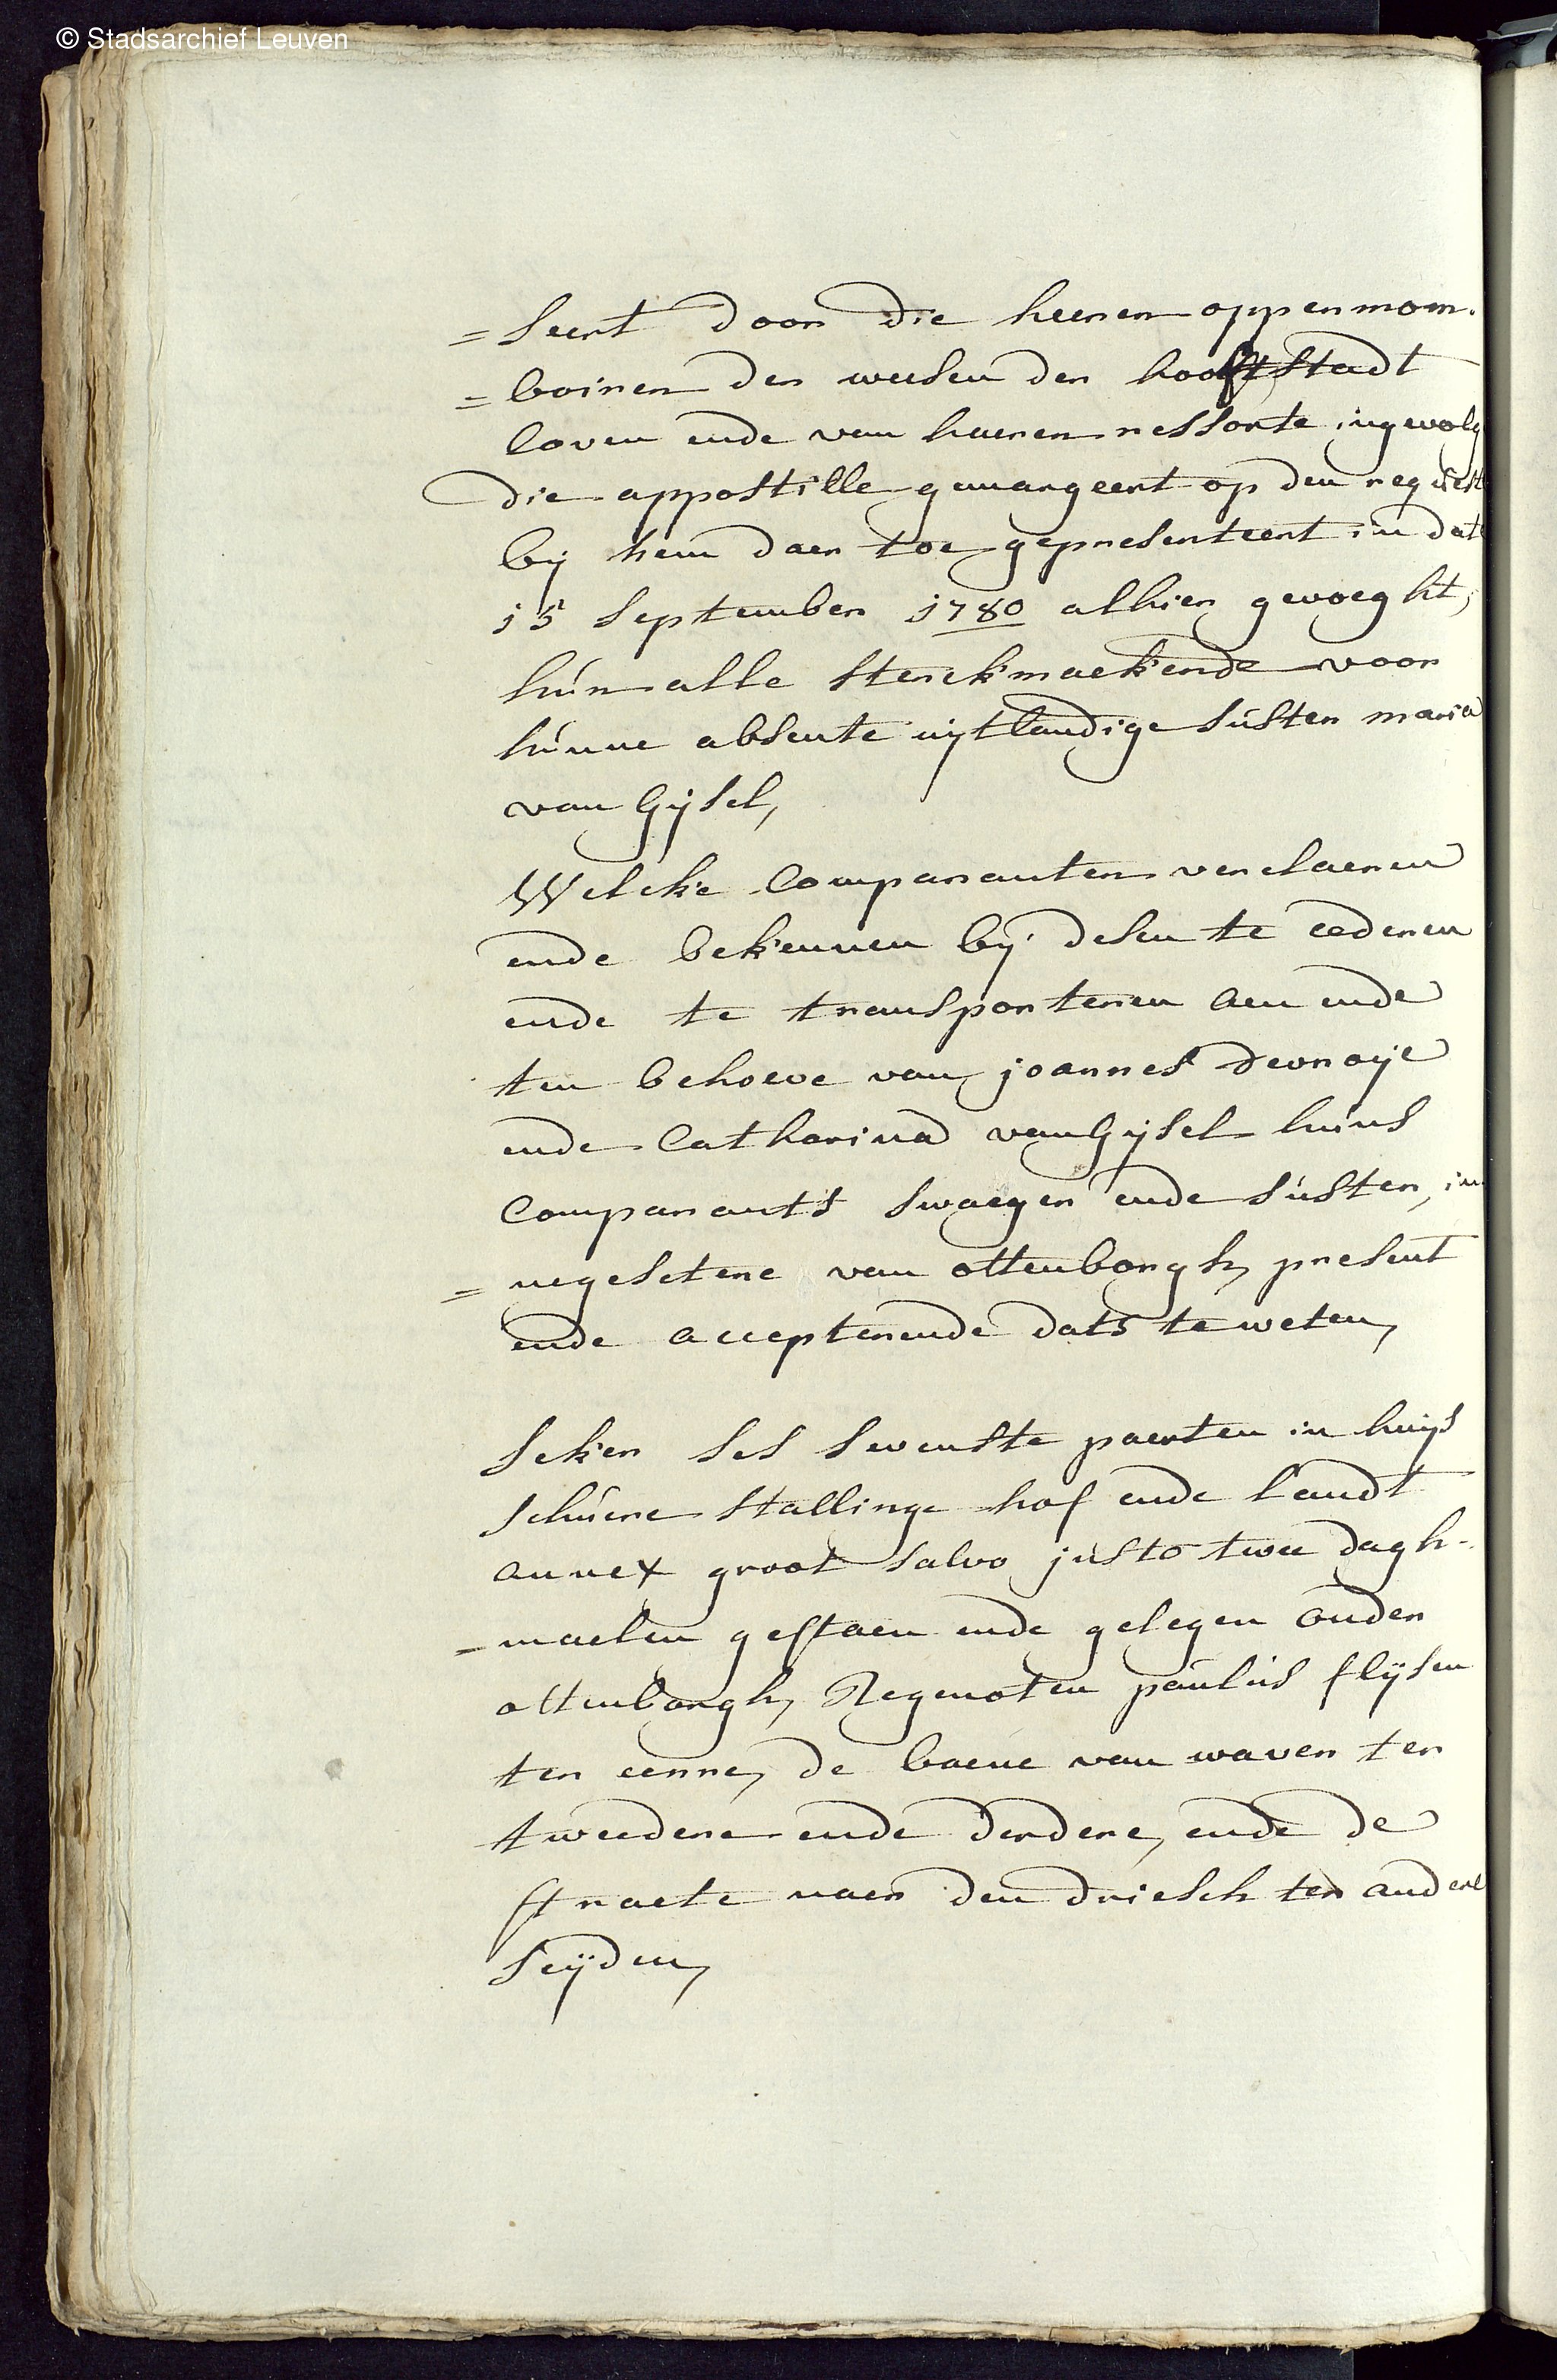 © Stadsarchief Leuven
= seert door die heeren oppermom.
= boiren der weesen der hooftstadt
loven ende van haeren ressorte ingevolg
die appostille gemargeert op den request
bij hem daer toe gepresenteert in dat
15 september 1780 alhier gevoeght,
hún alle sterckmaekende voor
húnne absente uijtlandige súster maria
van Gijsel,
Welcke Comparanten verclaeren
ende bekennen bij desen te cederen
ende te transporteren aen ende
ten behoeve van joannes Devroije
ende Catharina van Gijsel húns
Comparants swaeger ende súster, in
= negesetene van ottenborgh, present
ende accepterende dats te weten,
seker ses sevenste paerten in huijs
schúere stallinge hof ende landt
annex groot salvo jústo twee dagh-
= maelen gestaen ende gelegen onder
ottenborgh, Regenoten paúlús flijsen
ter eenre, de baene van waver ter
tweedere ende derdere, ende de
straete naer den driesch ter andere
seijden,